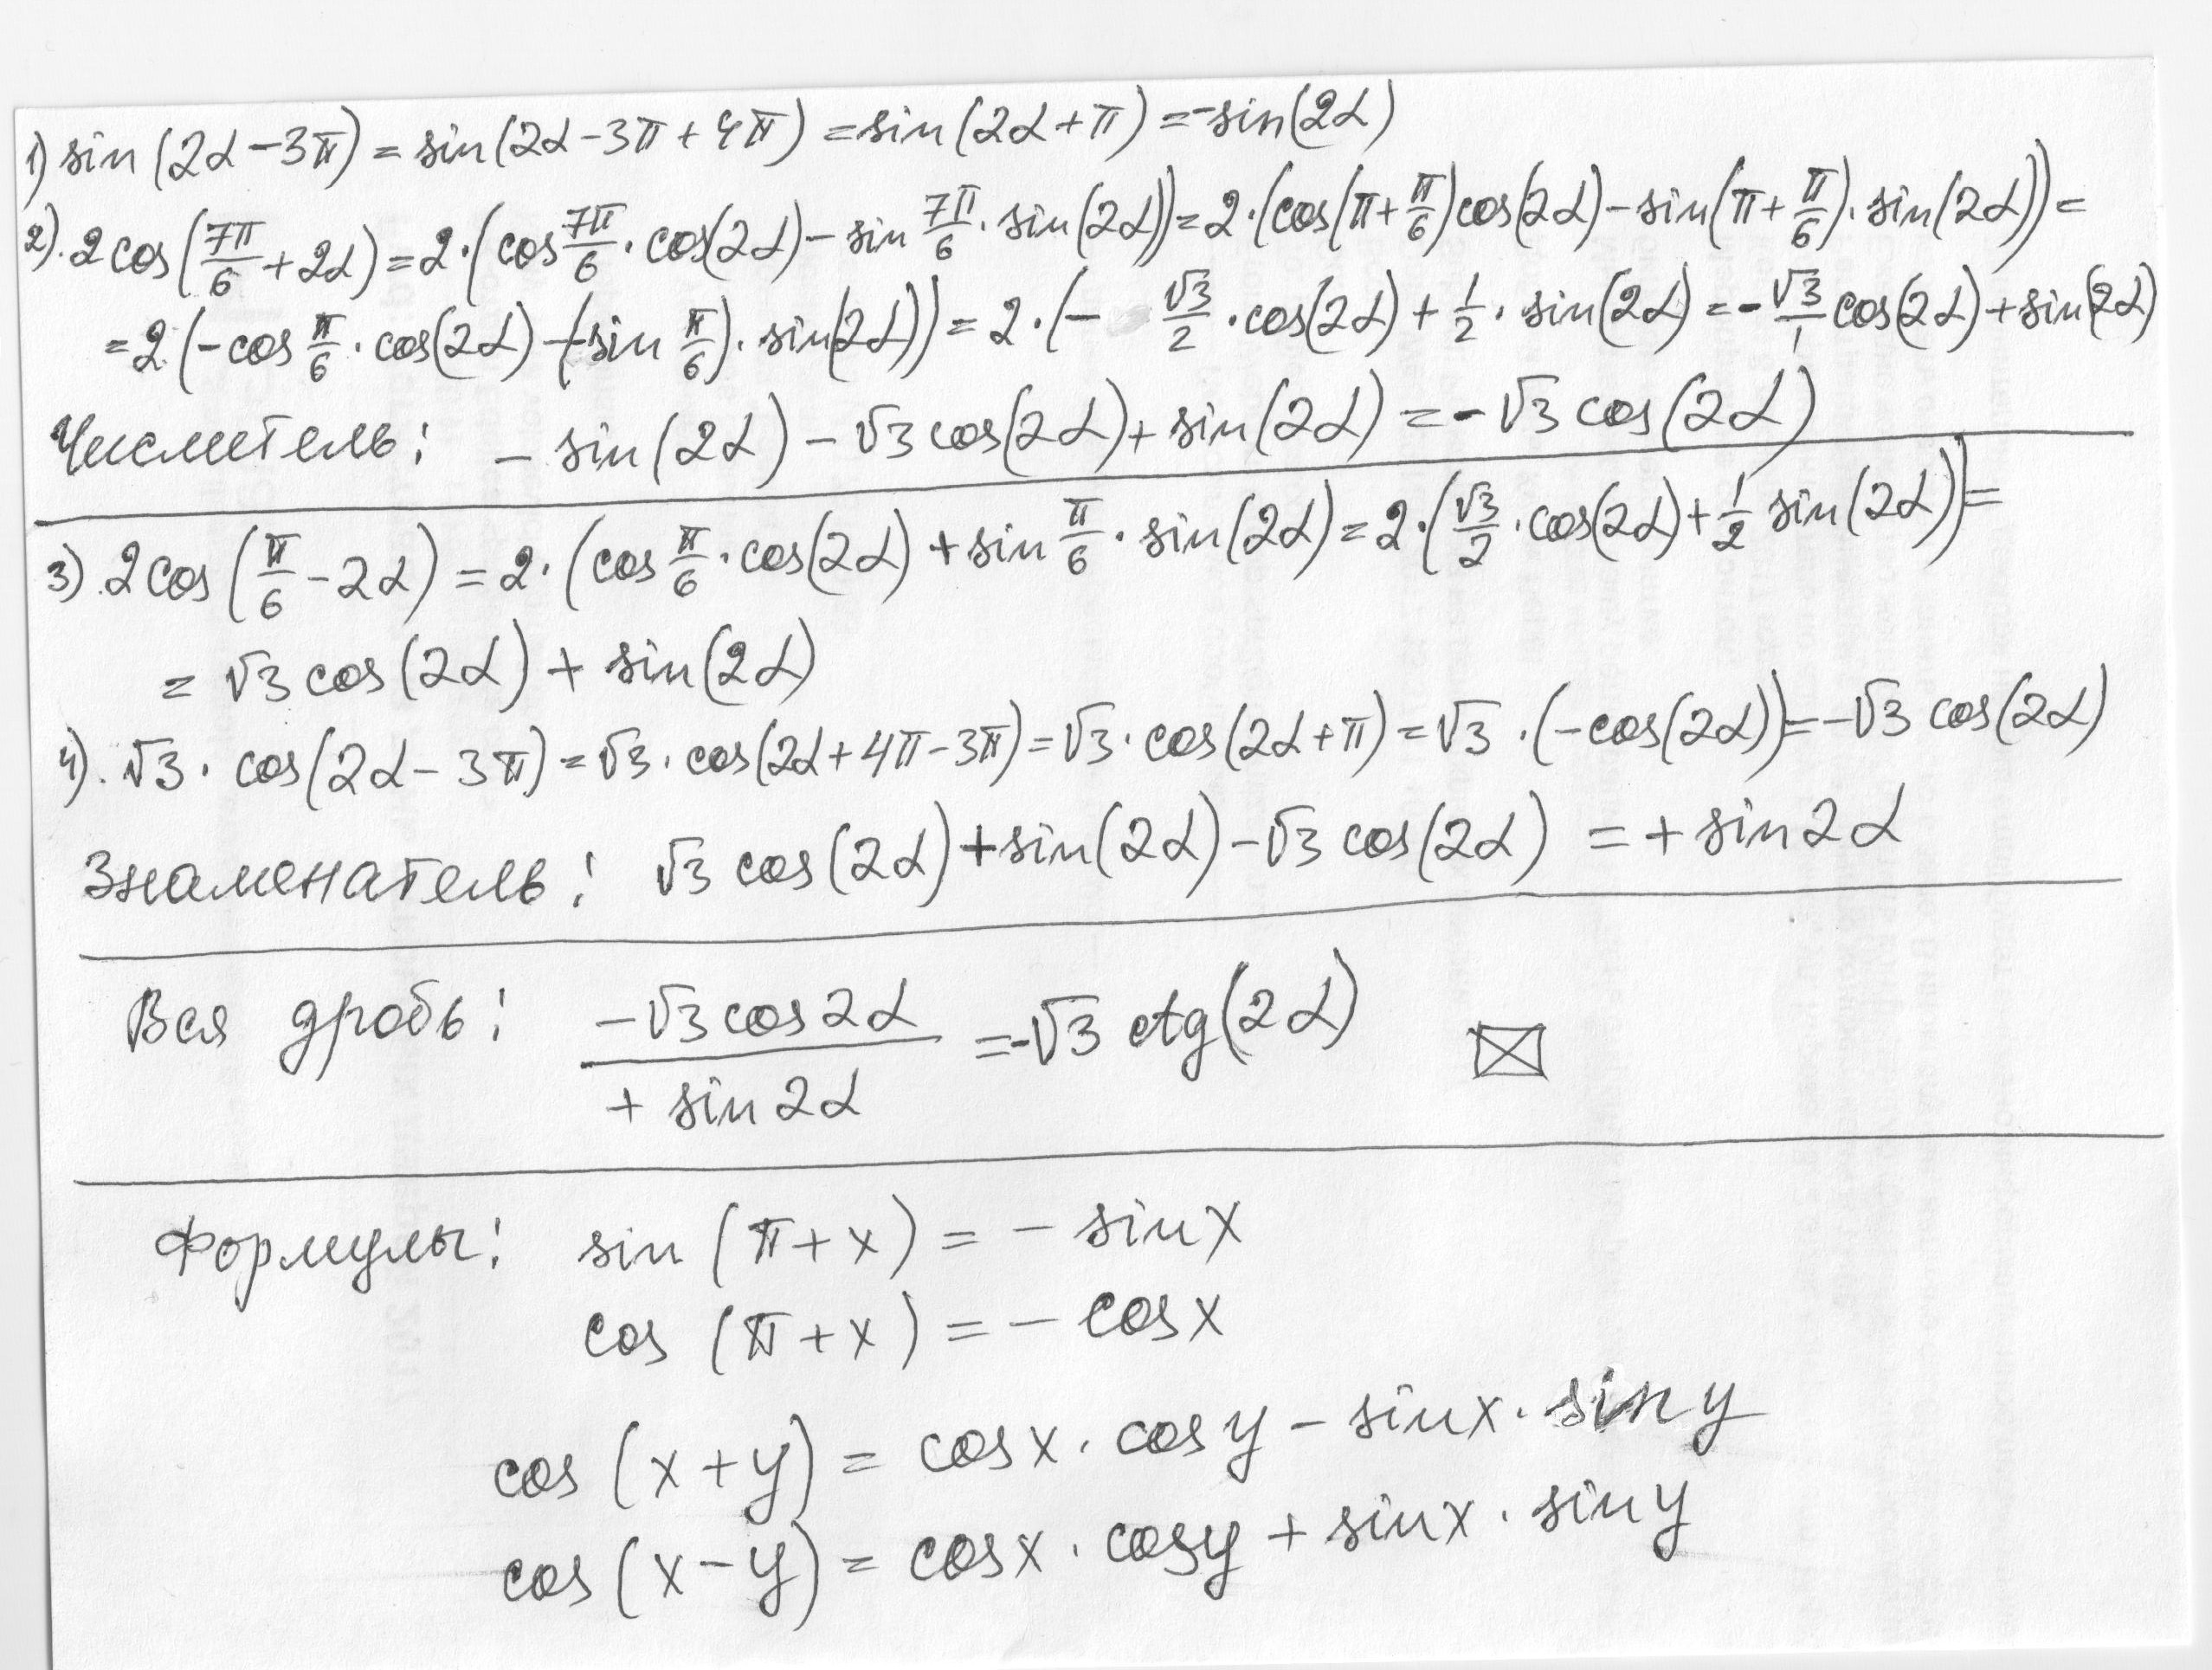 1) sin(2α-3π) = sin(2α-3π+4π) = sin(2α+π) = -sin(2α)
2). 2cos(7π/6+2α) = 2·(cos 7π/6 · cos(2α) - sin 7π/6 · sin(2α)) = 2·(cos(π+π/6)cos(2α) - sin(π+π/6)· sin(2α)) =
= 2(-cos π/6 · cos(2α) - (-sin π/6)· sin(2α)) = 2·(- √3/2 · cos(2α) + 1/2 · sin(2α) = -√3/1 cos(2α) + sin(2α)
Числитель: - sin(2α) - √3 cos(2α) + sin(2α) = -√3 cos(2α)
3). 2cos(π/6 - 2α) = 2·(cos π/6 · cos(2α) + sin π/6 · sin(2α) = 2·(√3/2 · cos(2α) + 1/2 sin(2α)) =
= √3 cos(2α) + sin(2α)
4). √3 · cos(2α - 3π) = √3 · cos(2α+4π-3π) = √3 · cos(2α+π) = √3 ·(-cos(2α)) = -√3 cos(2α)
Знаменатель: √3 cos(2α) + sin(2α) - √3 cos(2α) = + sin2α
Вся дробь: -√3 cos2α / + sin2α = -√3 ctg(2α)
Формулы: sin(π+x) = - sinx
cos(π+x) = - cosx
cos(x+y) = cosx · cosy - sinx · siny
cos(x-y) = cosx · cosy + sinx · siny